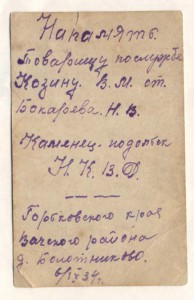 На память.
Товарищу по службе
Козину. В. М. от.
Бокарева. Н. В.
Каменец-подольск
Н. К. В. Д.
Горьковского края
Вачского района
д. Болотниково.
6/IX 34.